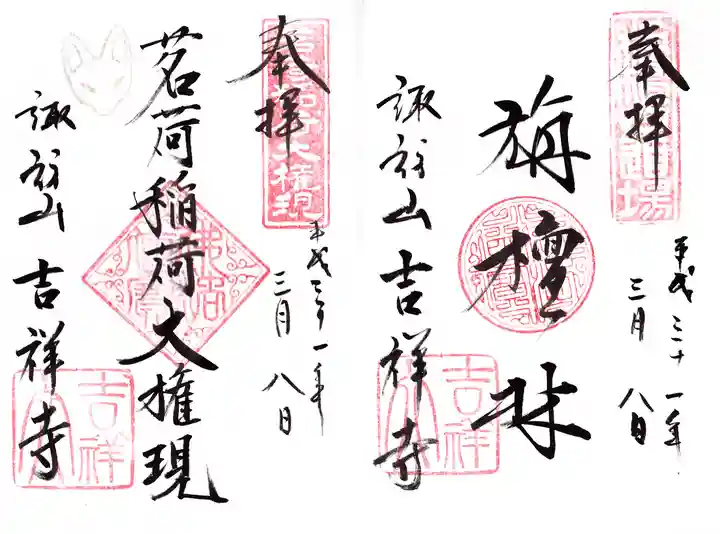 奉拝
旃檀林
平成三十一年
三月
八日
諏訪山 吉祥寺
吉祥
奉拝
大権現
茗荷稲荷大権現
平成三十一年
三月
八日
諏訪山 吉祥寺
吉祥